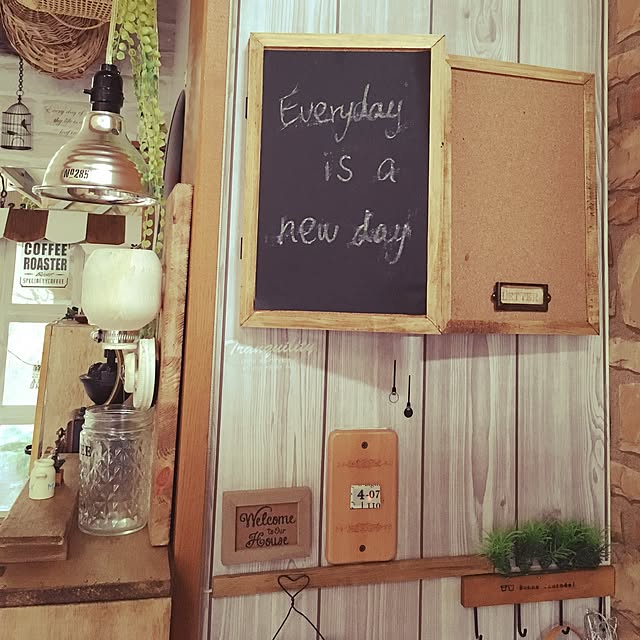 Everyday
is a
new day
Nº285
COFFEE
ROASTER
SPECIALTY COFFEE
LETTER
Tranquility
4-07
Welcome
to Our
House